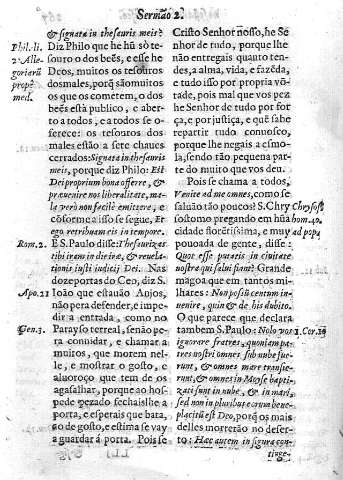 Sermão 2.
& signata in thesauris meis?
Diz Philo que he hũ sò te-
souro o dos beẽs, e esse he
Deos, muitos os tesouros
dos males, porq̃ são muitos
os que os cometem, o dos
beẽs està publico, e aber-
to a todos, e a todos se o-
ferece: os tesouros dos
males estão a sete chaues
cerrados: Signata in thesauris
meis, porque diz Philo: Est
Dei proprium bona offerre, &
præuenire nos liberalitate, ma-
la verò non facilè emittere, e
cõforme a isso se segue, Er-
go retribuam eis in tempore.
E S. Paulo disse: Thesaurizas
tibi iram in die iræ, & reuela-
tionis iusti judicij Dei. Nas
doze portas do Ceo, diz S.
Ioão que estauão Anjos,
não pera defender, e impe-
dir a entrada, como no
Parayso terreal, senão pe-
ra conuidar, e chamar a
muitos, que morem nel-
le, e mostrar o gosto, e
aluoroço que tem de os
agasalhar, porque ao hos-
pede pezado fechaislhe a
porta, e esperais que bata,
ao de gosto, e estima se vay
a guardar á porta. Pois se
Phil. li.
2. Alle-
goriarũ
propè
med.
Rom. 2.
Apo. 21
Gen. 3.
Cristo Senhor nosso, he Se
nhor de tudo, porque lhe
não entregais quanto ten-
des, a alma, vida, e fazẽda,
e tudo isso por propria võ-
tade, pois mal que vos pez
he Senhor de tudo por for
ça, e por justiça, e quẽ sabe
repartir tudo conuosco,
porque lhe negais a esmo-
la, sendo tão pequena par-
te do muito que vos deu.
Pois se chama a todos,
Venite ad me omnes, como se
saluão tão poucos? S. Chry
sostomo pregando em hũa
cidade florẽtissima, e muy
pouoada de gente, disse:
Quot esse putatis in ciuitate
nostra qui salui fiant? Grande
magoa que em tantos mi-
lhares: Non possũ centum in-
uenire, quin & de his dubito.
O que parece que declara
tambem S. Paulo: Nolo vos
ignorare fratres, quoniam pa-
tres nostri omnes sub nube fue-
runt, & omnes mare transie-
runt, & omnes in Moyse bapti-
zati sunt in nube, & in mari,
sed non in pluribus eorum bene-
placitũ est Deo, porq̃ os mais
delles morterão no deser-
to: Hæc autem in figura con-
tinge-
Chrysost
hom. 40.
ad popu
1. Cor. 10